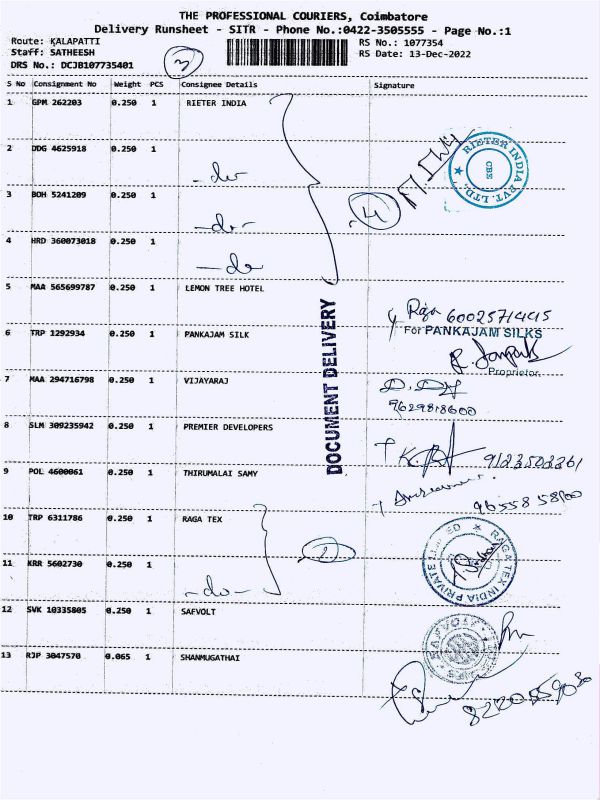 THE PROFESSIONAL COURIERS, Coimbatore
Delivery Runsheet - SITR - Phone No.:0422-3505555 - Page No.:1
Route: KALAPATTI
Staff: SATHEESH
DRS No.: DCJB107735401
3
RS No.: 1077354
RS Date: 13-Dec-2022
S No Consignment No Weight PCS Consignee Details Signature
1 GPM 262203 0.250 1 RIETER INDIA
2 DDG 4625918 0.250 1 -do-
RIETER INDIA PVT. LTD. ★ CBE
3 BOH 5241209 0.250 1 -do-
4
4 HRD 360073018 0.250 1 -do-
5 MAA 565699787 0.250 1 LEMON TREE HOTEL
Raja
6 TRP 1292934 0.250 1 PANKAJAM SILK
For PANKAJAM SILKS
Proprietor
7 MAA 294716798 0.250 1 VIJAYARAJ
9629818600
8 SLM 309235942 0.250 1 PREMIER DEVELOPERS
9123502261
9 POL 4600061 0.250 1 THIRUMALAI SAMY
DOCUMENT DELIVERY
10 TRP 6311786 0.250 1 RAGA TEX
2
RAGA TEX INDIA PRIVATE LIMITED ★
11 KRR 5602730 0.250 1 -do-
12 SVK 10335805 0.250 1 SAFVOLT
13 RJP 3047570 0.065 1 SHANMUGATHAI